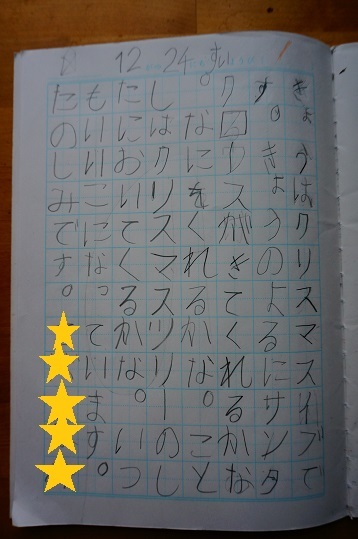 12 24 すい
きょうはクリスマスイブで
す。きょうのよるにサンタ
クウスがきてくれるかな
。なにをくれるかな。こと
しはクリスマスツリーのし
たにおいてくるかな。いつ
もいいこになっています。
たのしみです。